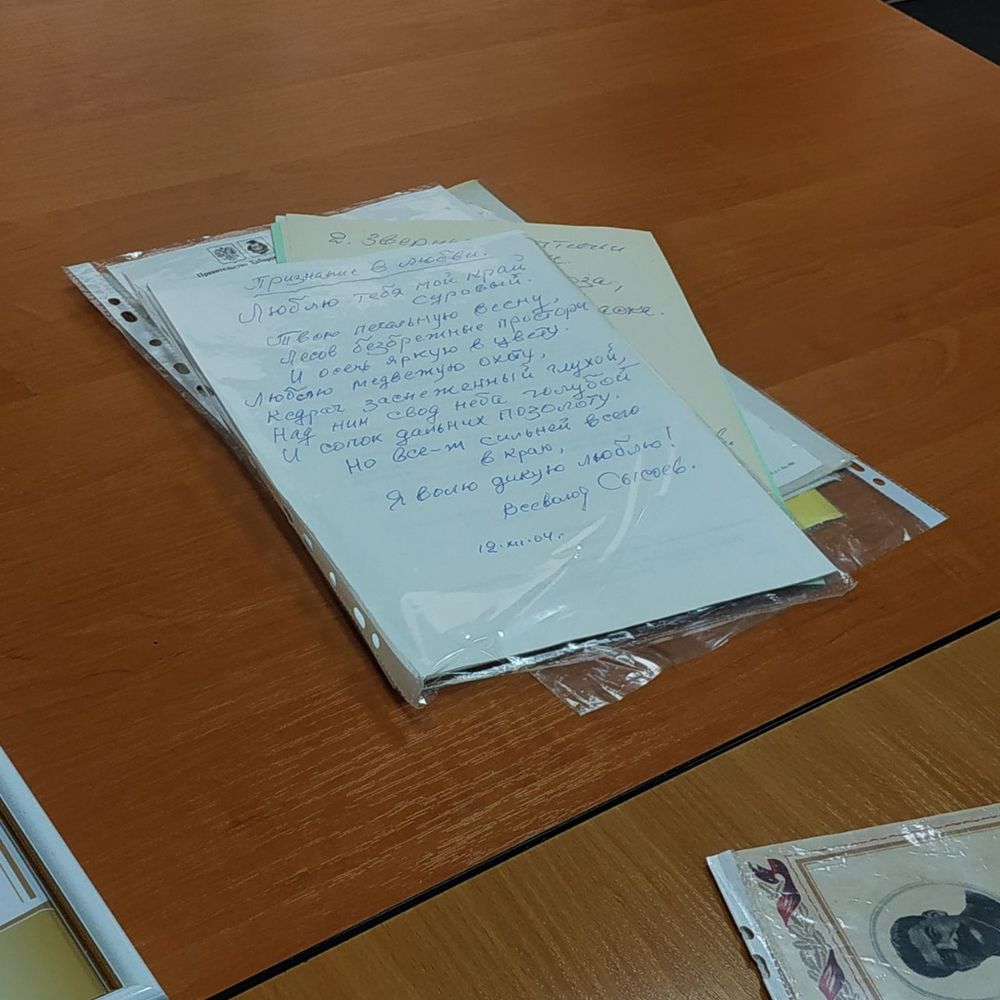 Правительство Хабаро
2. Звери
птички
оза,
аска.
Признание в любви.
Люблю тебя мой край
суровый.
Твою печальную весну,
Лесов безбрежные просторы
И осень яркую в цвету.
Люблю медвежую охоту,
Кедрач заснеженный глухой,
Над ним свод неба голубой
И сопок дальних позолоту.
Но все-ж сильней всего
в краю,
Я волю дикую люблю!
Всеволод Сысоев.
12.XII.04г.